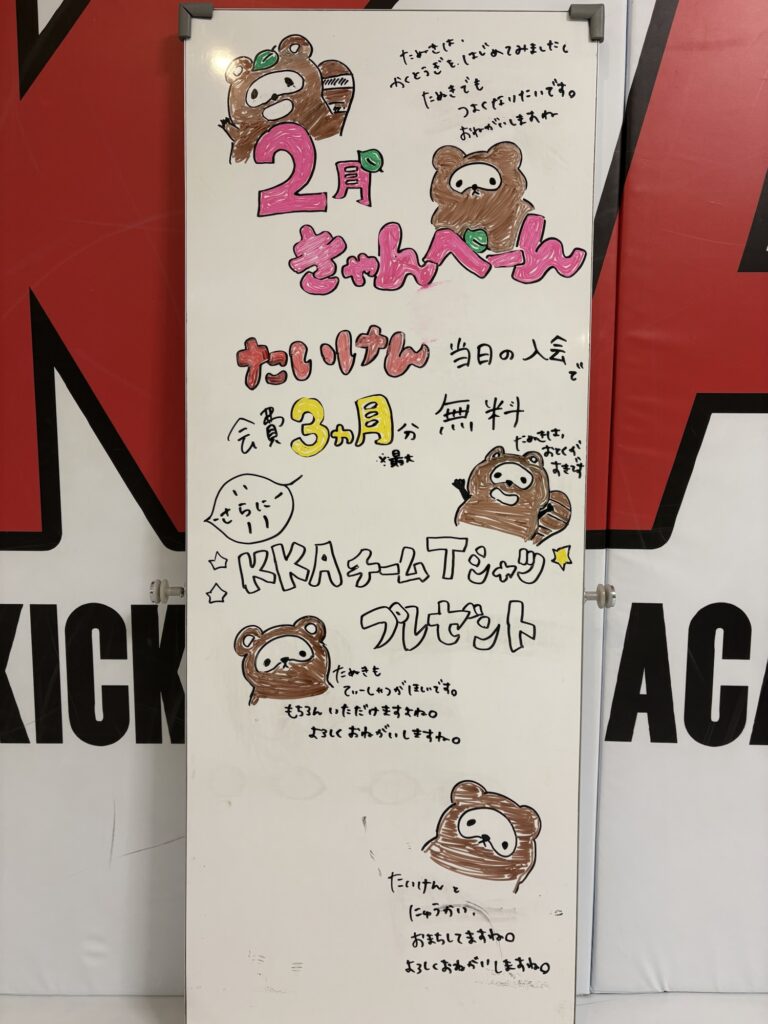 たぬきは、
かくとうぎを、はじめてみましたし
たぬきでも
つよくなりたいです。
おねがいしますね
2月
きゃんぺーん
たいけん 当日の入会で
会費3ヵ月分 無料
※最大
たぬきは、
おとくが
すきです
さらに
KKAチームTシャツ
プレゼント
たぬきも
てぃーしゃつがほしいです。
もちろんいただけますよね。
よろしくおねがいしますね。
たいけんと
にゅうかい、
おまちしてますね。
よろしくおねがいしますね。
KICK
ACA